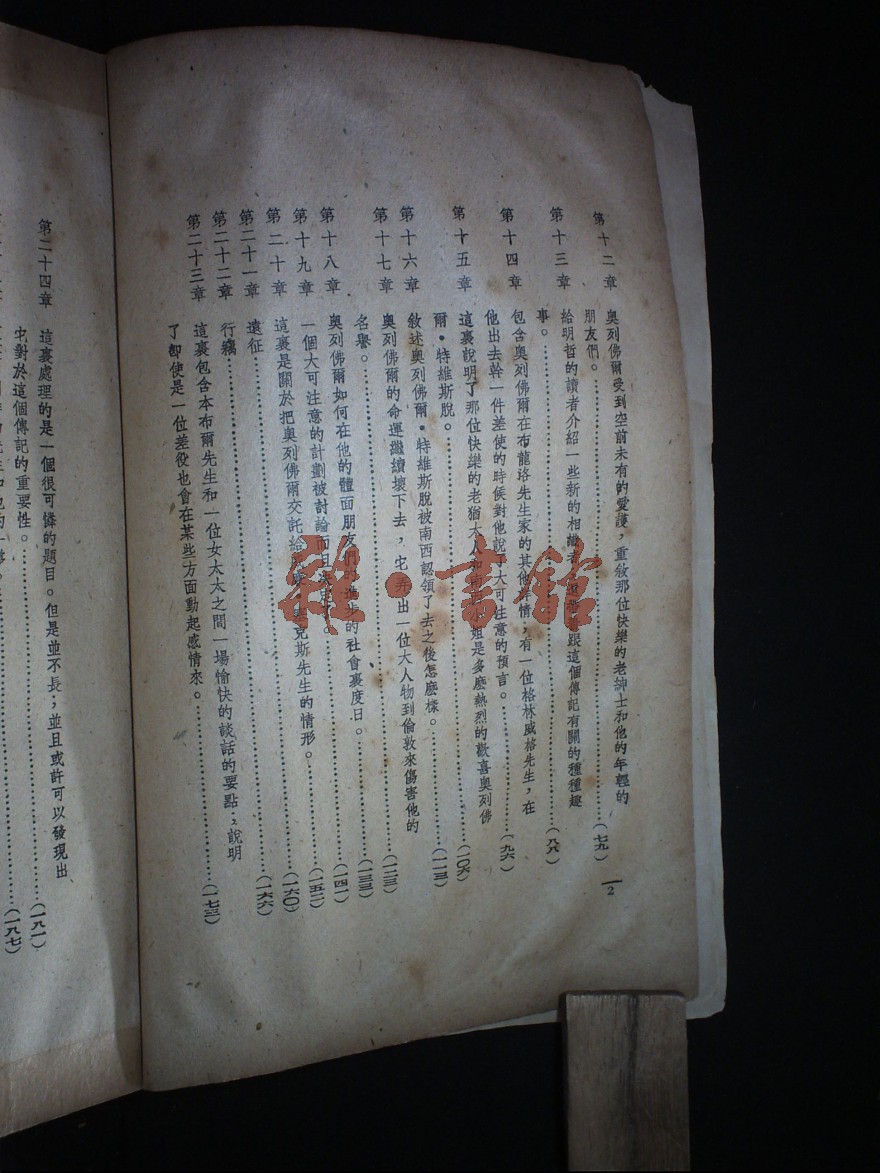 第十二章 奧列佛爾受到空前未有的愛護，重敘那位快樂的老紳士和他的年輕的
朋友們。……（七九）
第十三章 給明哲的讀者介紹一些新的相識者，跟這個傳記有關的種種趣
事。……（八八）
第十四章 包含奧列佛爾在布龍洛先生家的其他事情，有一位格林威格先生，在
他出去幹一件差使的時候對他說了大可注意的預言。……（九六）
第十五章 這裏說明了那位快樂的老猶太人和南西小姐是多麽熱烈的歡喜奧列佛
爾·特維斯脫。……（一〇六）
第十六章 敘述奧列佛爾·特維斯脫被南西認領了去之後怎麽樣。……（一一三）
第十七章 奧列佛爾的命運繼續壞下去，它弄出一位大人物到倫敦來傷害他的
名譽。……（一二三）
第十八章 奧列佛爾如何在他的體面朋友們的進步的社會裏度日。……（一三三）
第十九章 一個大可注意的計劃被討論而且決定了。……（一四一）
第二十章 這裏是關於把奧列佛爾交託給克斯先生的情形。……（一五二）
第二十一章 遠征……（一六〇）
第二十二章 行竊……（一六六）
第二十三章 這裏包含本布爾先生和一位女太太之間一場愉快的談話的要點，說明
了卽使是一位差役也會在某些方面動起感情來。……（一七三）
2
第二十四章 這裏處理的是一個很可憐的題目。但是並不長，並且或許可以發現出
它對於這個傳記的重要性。……（一八一）
（一八七）
雜·書館